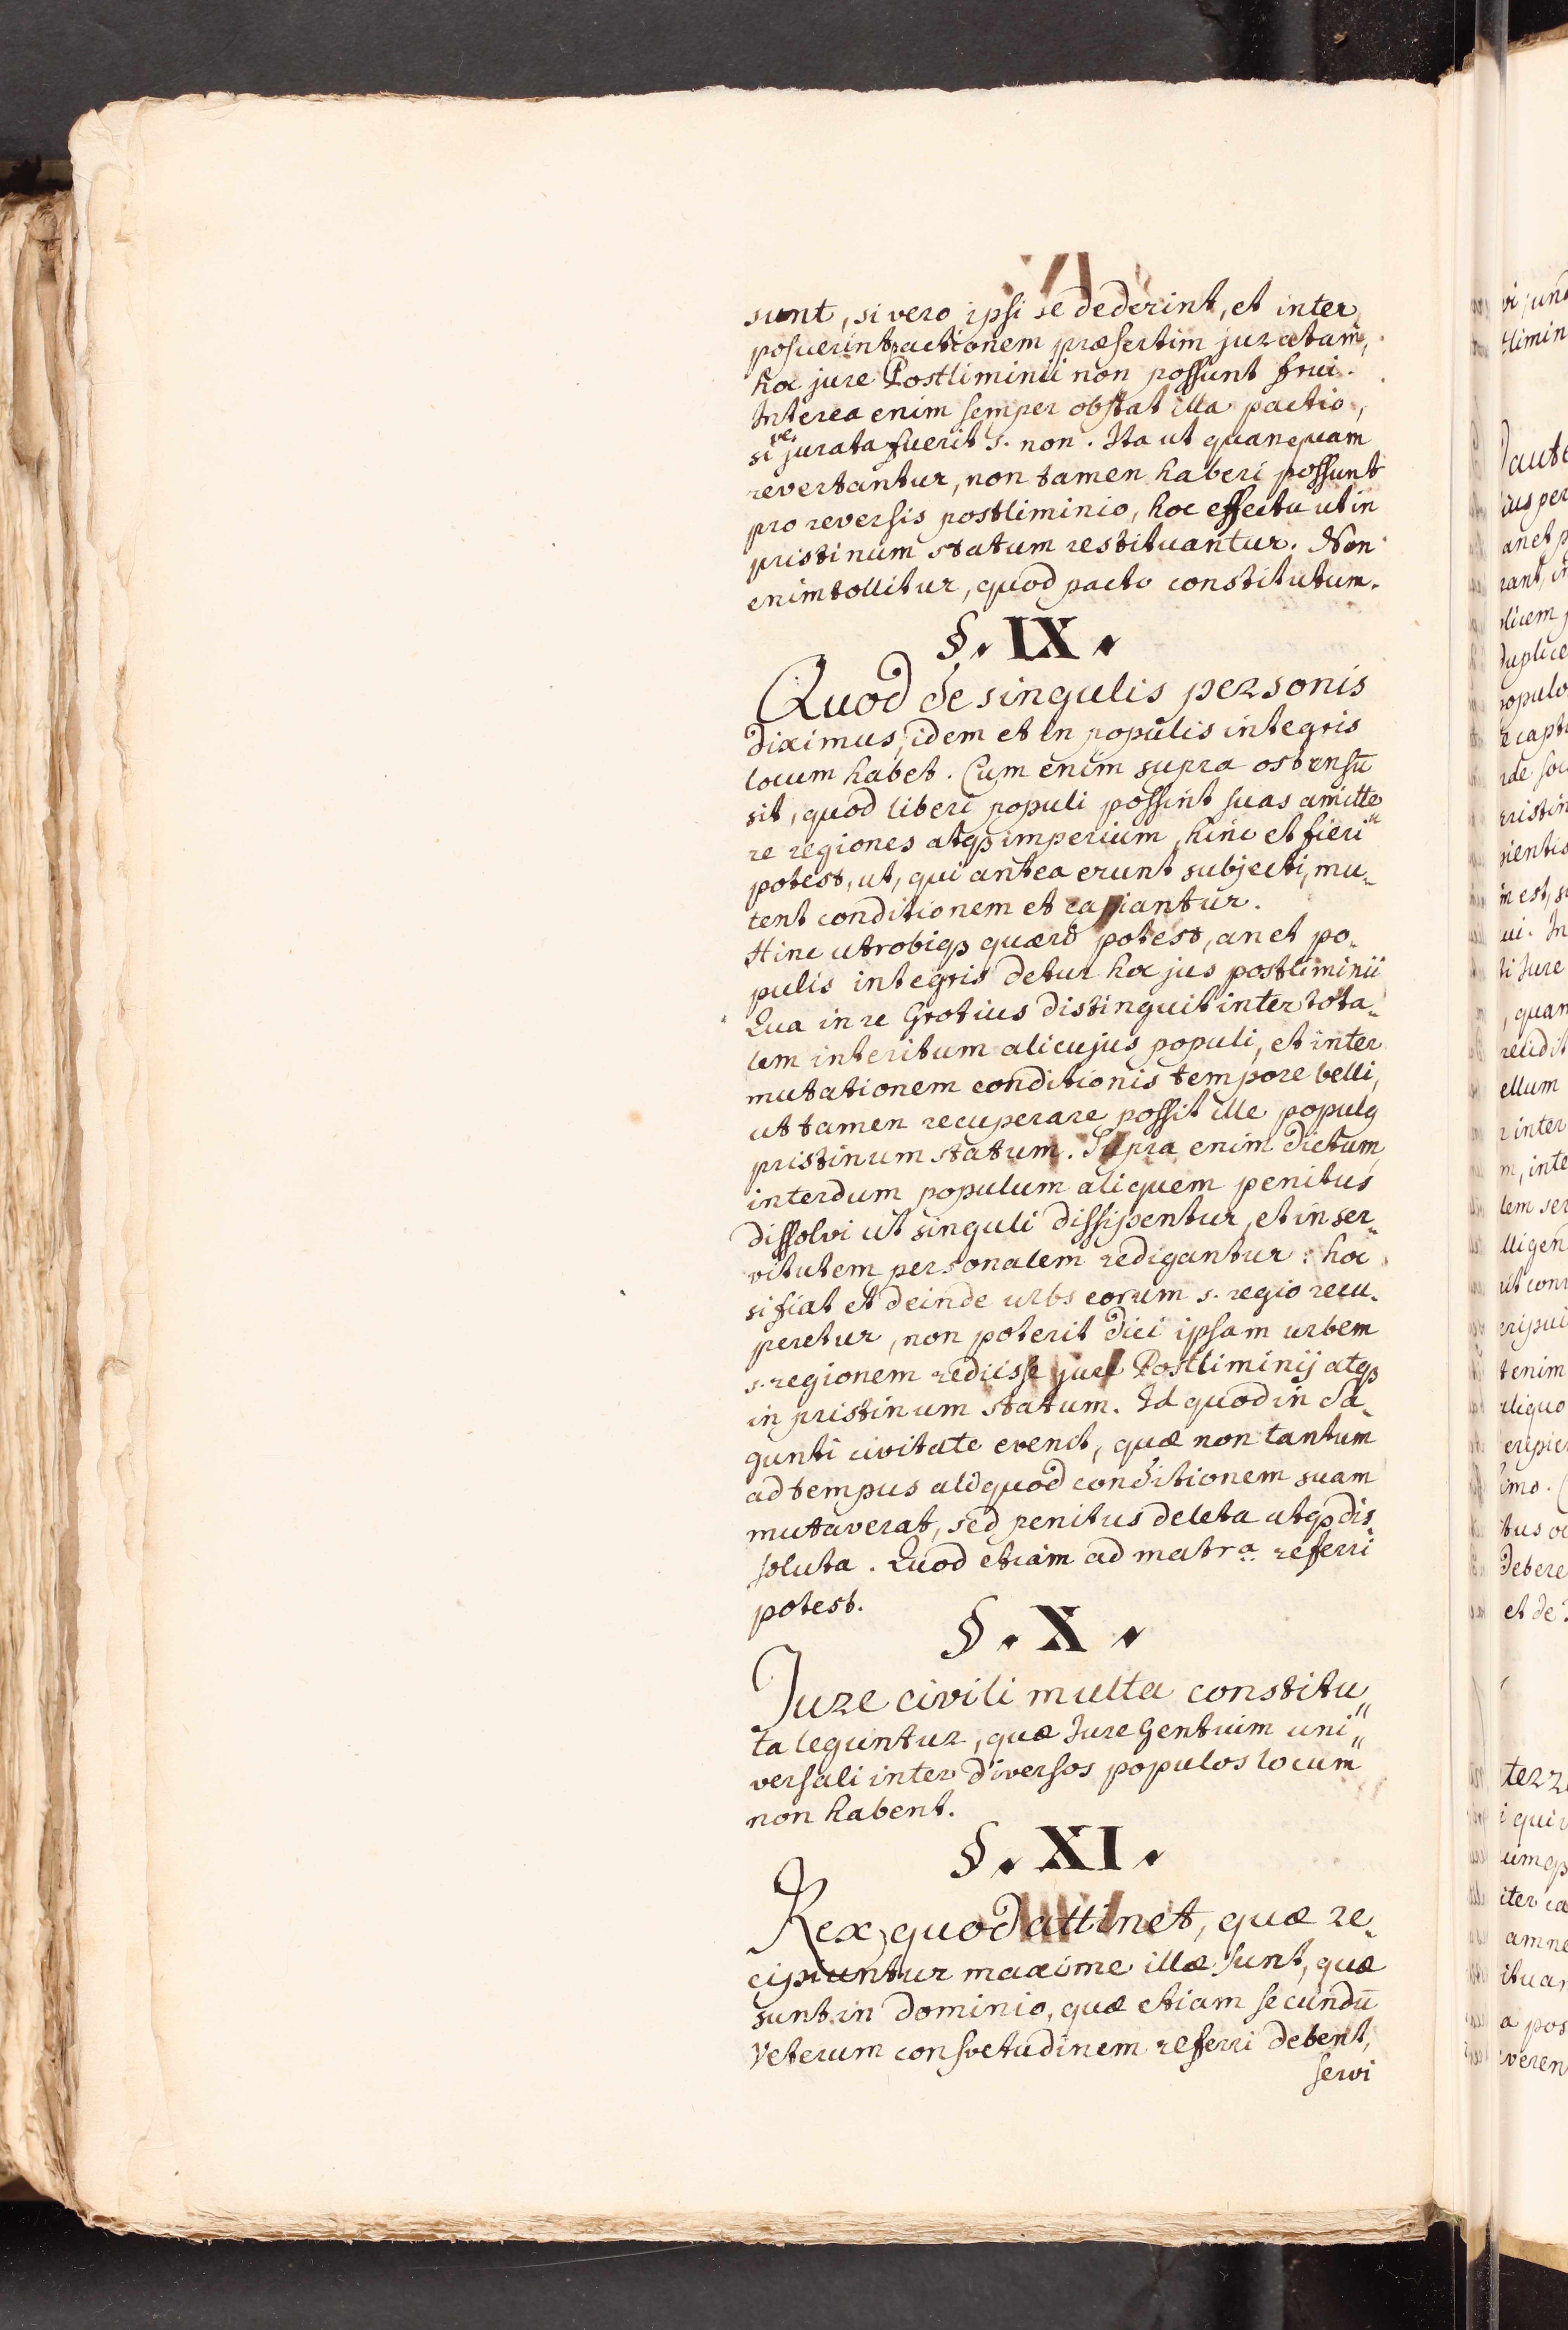 sunt, si vero ipsi se dederint, et inter
posuerint pactionem præsertim juratam,
hoc jure Postliminii non possunt frui.
Interea enim semper obstat illa pactio,
sive jurata fuerit s. non. Ita ut quanquam
revertantur, non tamen haberi possunt
pro reversis postliminio, hoc effectu ut in
pristinum statum restituantur. Non
enim tollitur, quod pacto constitutum.
§. IX.
Quod de singulis personis
diximus, idem et in populis integris
locum habet. Cum enim supra ostensū
sit, quod liberi populi possint suas amitte
re regiones atqꝫ imperium, hinc et fieri
potest, ut, qui antea erunt subjecti, mu-
tent conditionem et capiantur.
Hinc utrobiqꝫ quæri potest, an et po-
pulis integris detur hoc jus postliminii
Qua in re Grotius distinguit inter tota-
lem interitum alicujus populi, et inter
mutationem conditionis tempore belli,
ut tamen recuperare possit ille populꝫ
pristinum statum. Supra enim dictum,
interdum populum aliquem penitus
dissolvi ut singuli dissipentur, et in ser-
vitutem personalem redigantur: hoc
si fiat et deinde urbs eorum s. regio recu-
peretur, non poterit dici ipsam urbem
s. regionem rediisse jure Postliminij atqꝫ
in pristinum statum. Id quod in Sa-
gunti civitate evenit, quæ non tantum
ad tempus aliquod conditionem suam
mutaverat, sed penitus deleta atqꝫ dis-
soluta. Quod etiam ad matra. referri
potest.
§. X.
Jure civili multa constitu-
ta leguntur, quæ Jure Gentium uni-
versali inter diversos populos locum
non habent.
§. XI.
Rex, quod attinet, quæ re-
cipiuntur maxime illæ sunt, quæ
sunt in dominio, quæ etiam secundū
Veterum consvetudinem referri debent,
servi